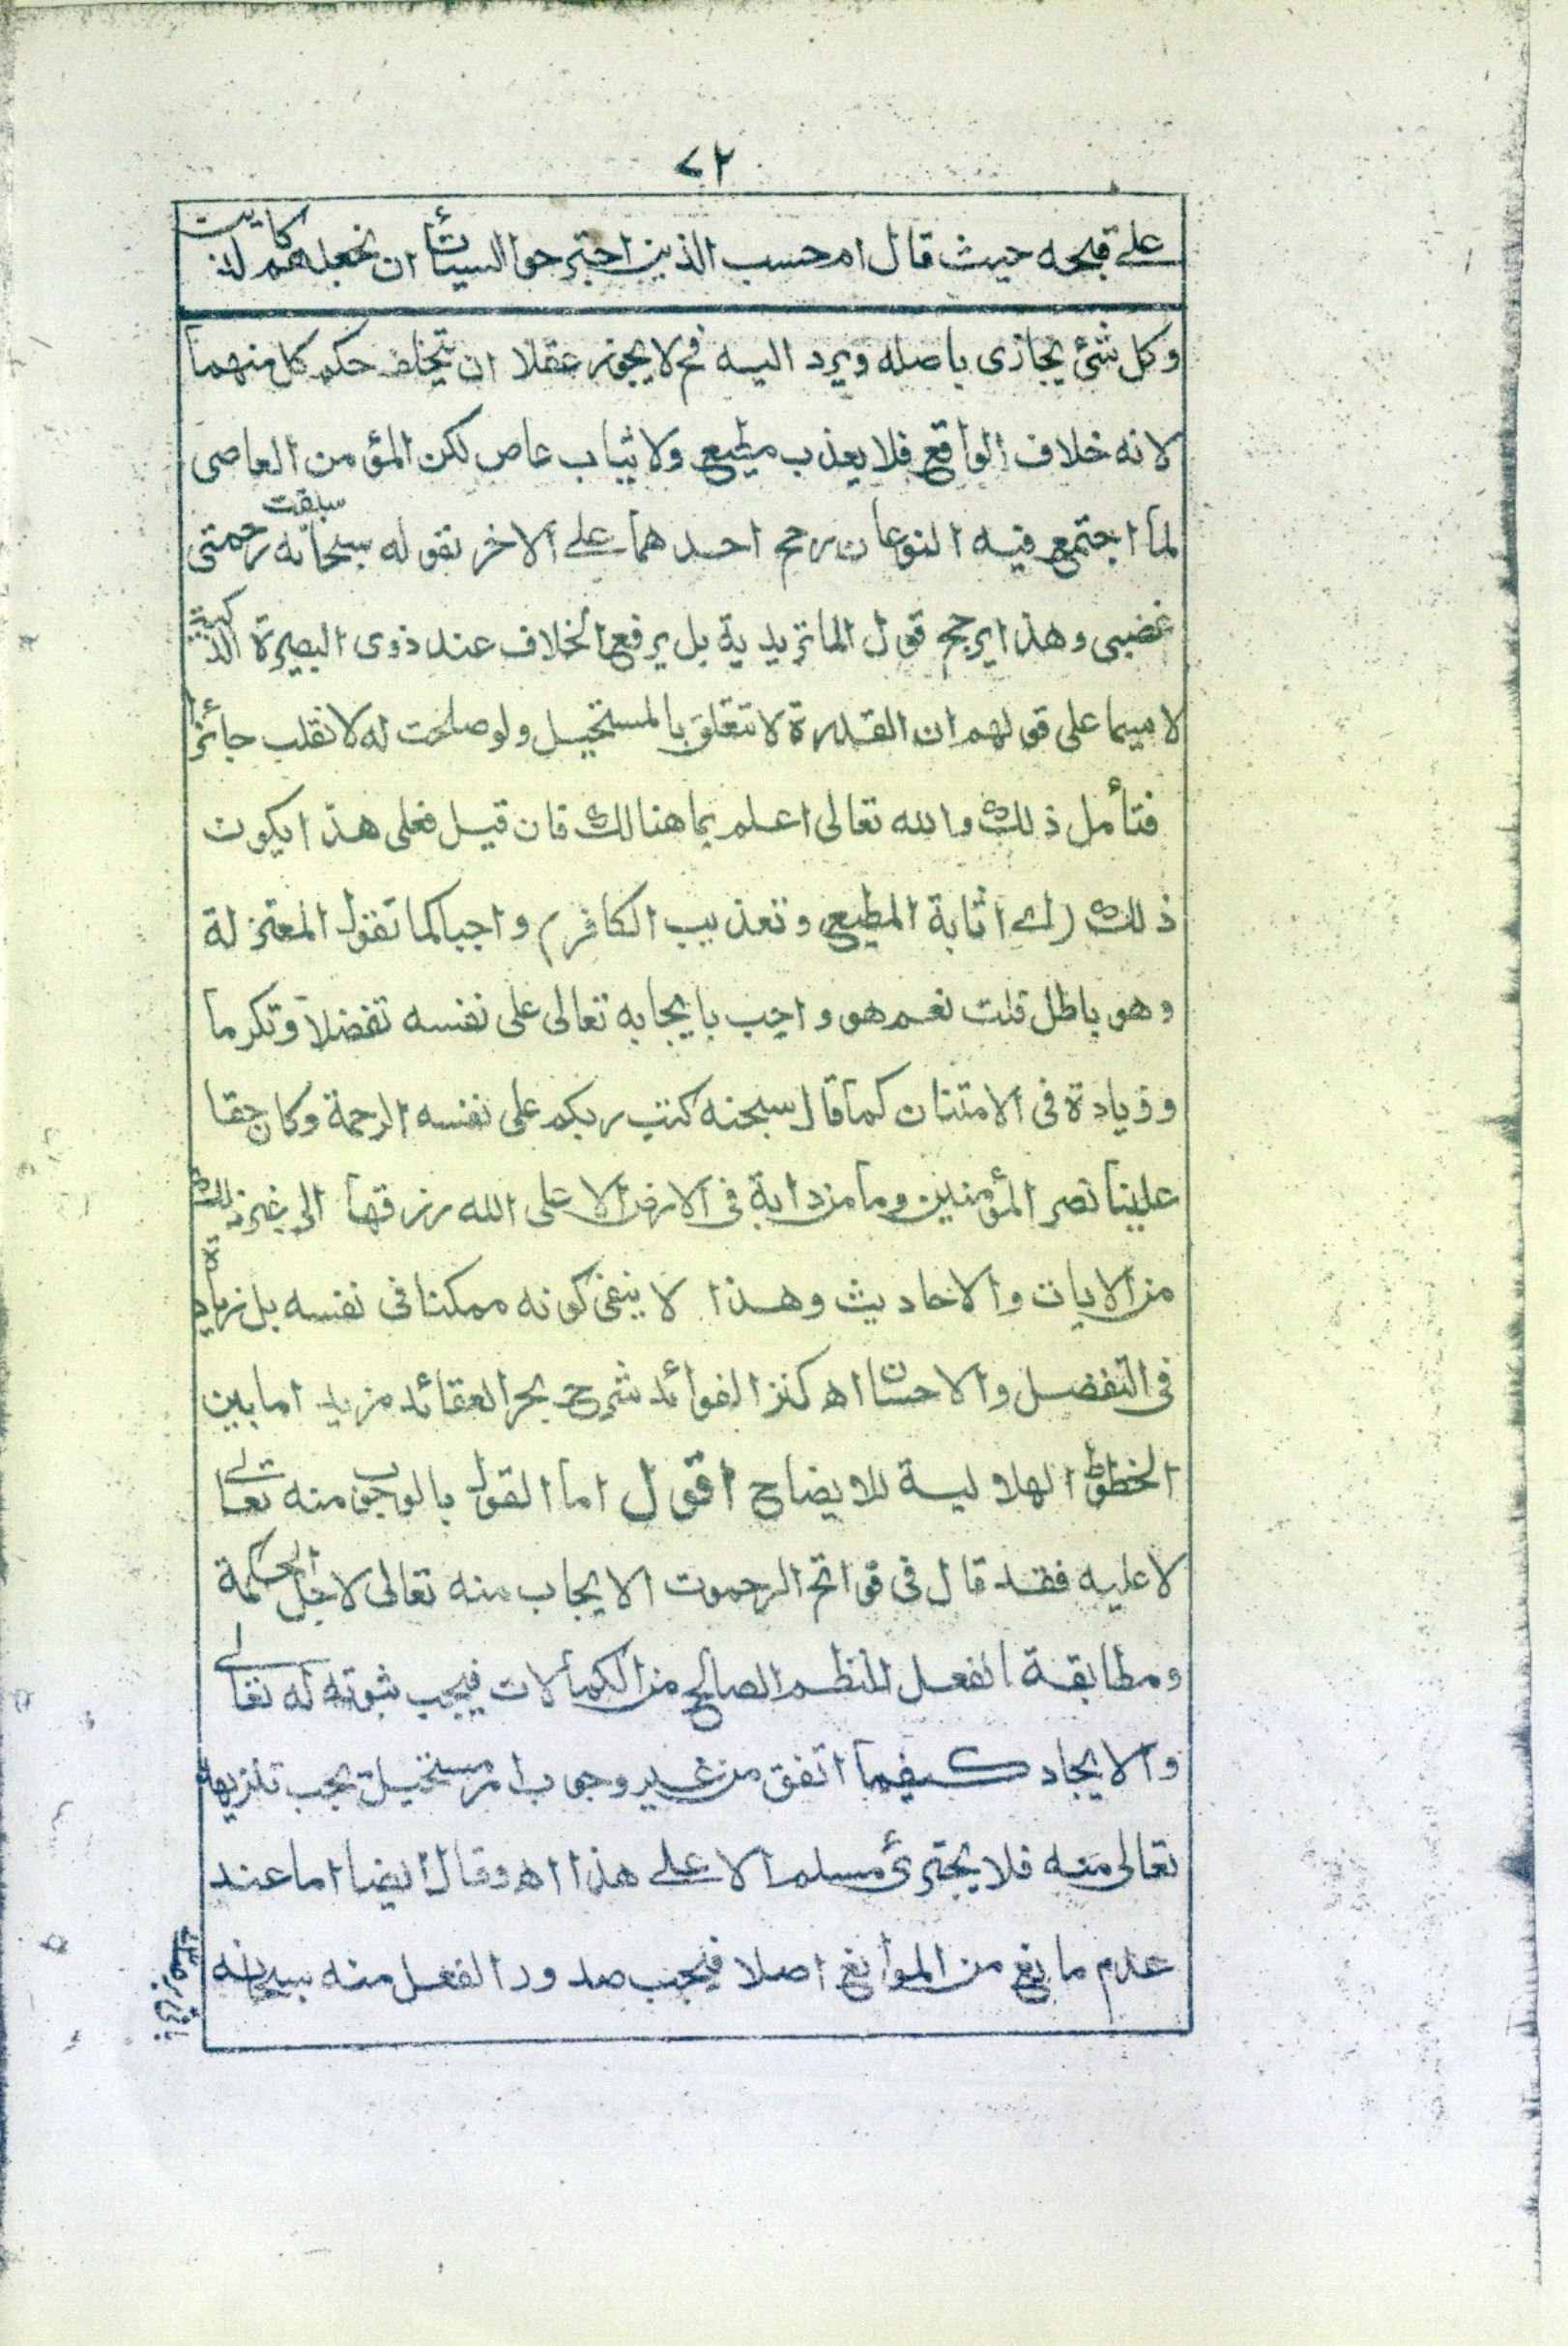 ٧٢
على قبحه حيث قال ام حسب الذين اجترحوا السيئات ان نجعلهم كالذين
وكل شئ يجازى باصله ويرد اليه فح لا يجوز عقلا ان يتخلف حكم كل منهما
لانه خلاف الواقع فلا يعذب مطيع ولا يثاب عاص لكن المؤمن العاصى
لما اجتمع فيه النوعان رجح احدهما على الاخر بقوله سبحانه سبقت رحمتى
غضبى وهذا يرجح قول الماتريدية بل يرفع الخلاف عند ذوى البصيرة
لا سيما على قولهم ان القدرة لا تتعلق بالمستحيل ولو صلحت له لانقلب جائزا
فتأمل ذلك والله تعالى اعلم بما هنالك فان قيل فعلى هذا يكون
ذلك (اى اثابة المطيع وتعذيب الكافر) واجبا كما تقول المعتزلة
وهو باطل قلت نعم هو واجب بايجابه تعالى على نفسه تفضلا وتكرما
وزيادة فى الامتنان كما قال سبحنه كتب ربكم على نفسه الرحمة وكان حقا
علينا نصر المؤمنين وما من دابة فى الارض الا على الله رزقها الى غير ذلك
من الايات والاحاديث وهذا لا ينفى كونه ممكنا فى نفسه بل زيادة
فى التفضل والاحسان اه كنز الفوائد شرح بحر العقائد مزيد اما بين
الخطوط الهلالية للايضاح اقول اما القول بالوجوب منه تعالى
لا عليه فقد قال فى فواتح الرحموت الايجاب منه تعالى لاجل الحكمة
ومطابقة الفعل للنظم الصالح من الكمالات فيجب ثبوته له تعالى
والايجاد كيفما اتفق من غير وجوب امر مستحيل يجب تنزيهه
تعالى منه فلا يجترئ مسلم الا على هذا اه وقال ايضا اما عند
عدم مانع من الموانع اصلا فيجب صدور الفعل منه سبحانه